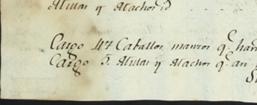 Mulas q Machos
Cargo 47 Caballos mansos q han
Cargo 5. Mulas q Machos q an